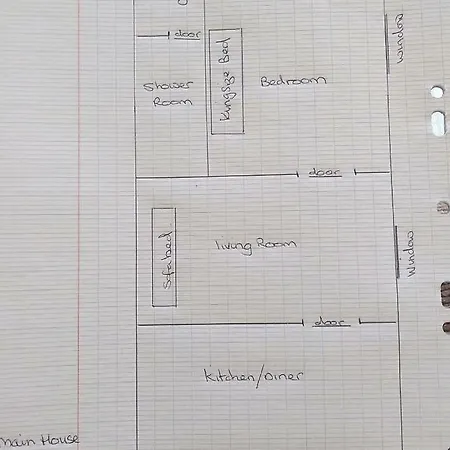 door
Window
Kingsize Bed
Shower
Room
Bedroom
door
Sofabed
living Room
Window
door
Kitchen/Diner
main House